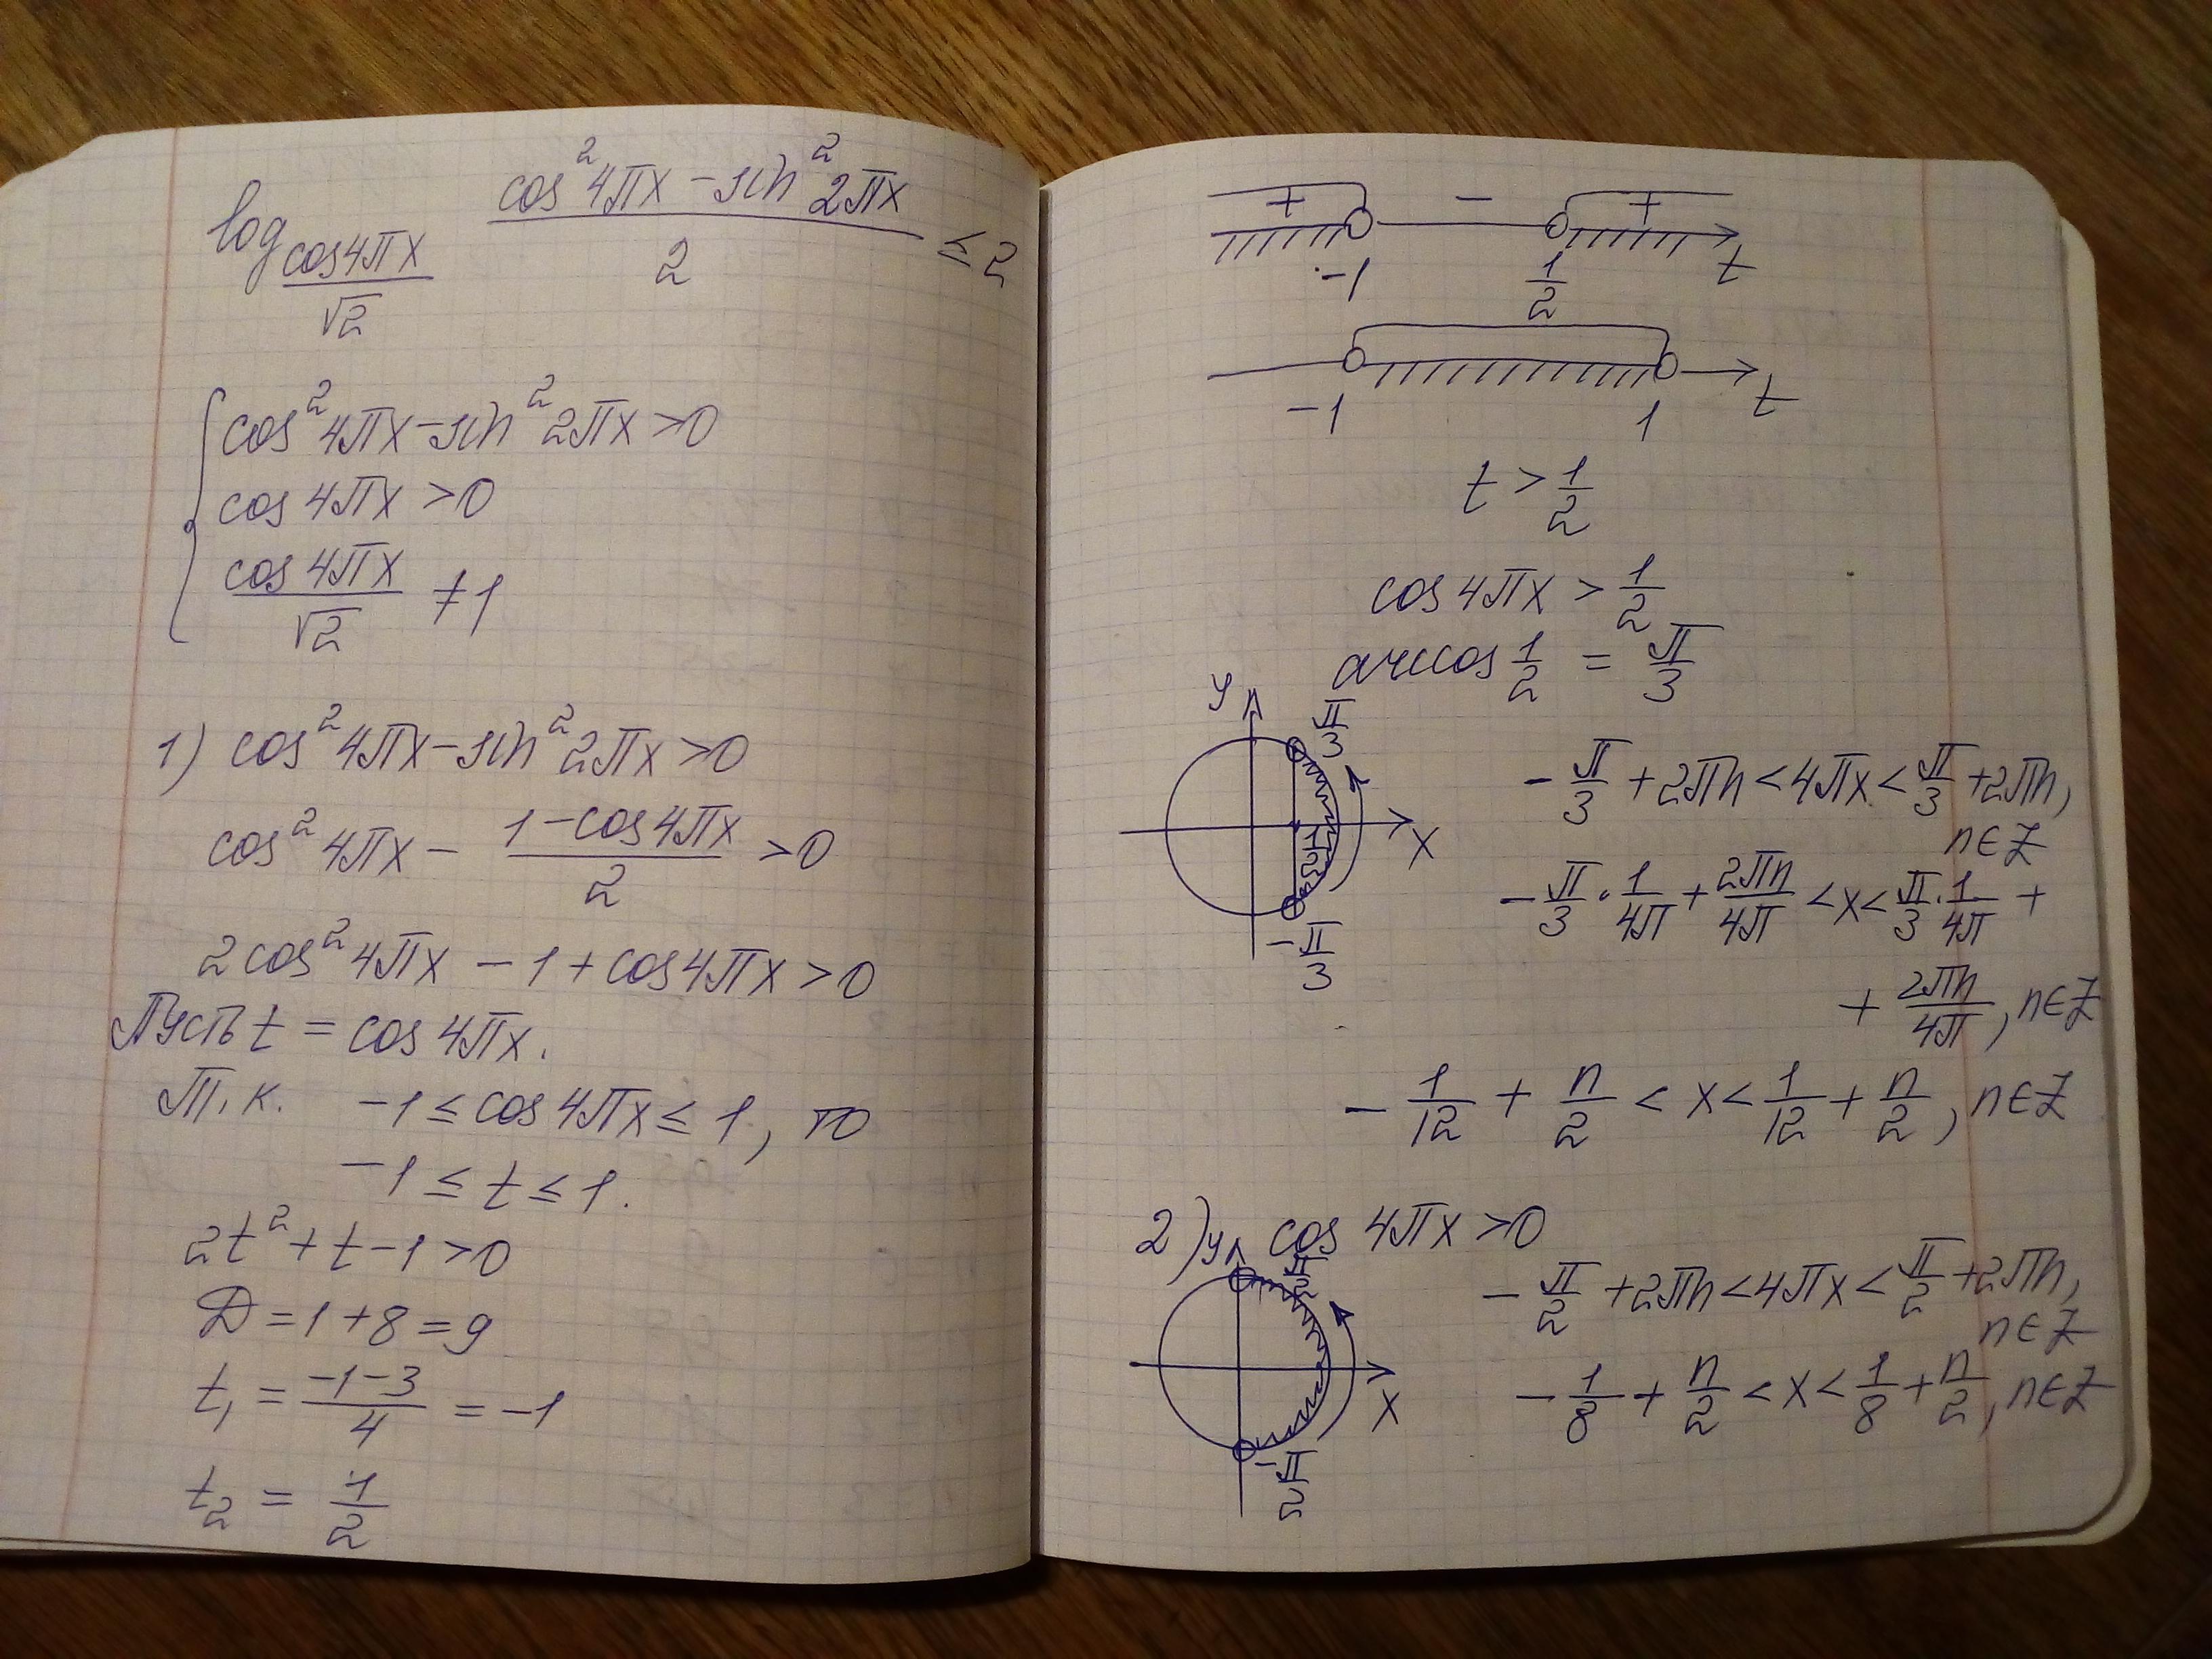 log_{cos4πx/√2} (cos²4πx − sin²2πx)/2 ≤ 2
{ cos²4πx − sin²2πx > 0
cos 4πx > 0
cos 4πx/√2 ≠ 1
1) cos²4πx − sin²2πx > 0
cos²4πx − (1 − cos4πx)/2 > 0
2cos²4πx − 1 + cos4πx > 0
Пусть t = cos 4πx.
Т.к. −1 ≤ cos 4πx ≤ 1, то
−1 ≤ t ≤ 1.
2t² + t − 1 > 0
D = 1 + 8 = 9
t₁ = (−1−3)/4 = −1
t₂ = 1/2
+ − +
−1 1/2 t
−1 1 t
t > 1/2
cos 4πx > 1/2
arccos 1/2 = π/3
y π/3
−π/3 + 2πn < 4πx < π/3 + 2πn,
n∈Z
1/2 x
−π/3 · 1/4π + 2πn/4π < x < π/3 · 1/4π +
−π/3
+ 2πn/4π, n∈Z
−1/12 + n/2 < x < 1/12 + n/2, n∈Z
2) cos 4πx > 0
y π/2
−π/2 + 2πn < 4πx < π/2 + 2πn,
n∈Z
x
−1/8 + n/2 < x < 1/8 + n/2, n∈Z
−π/2